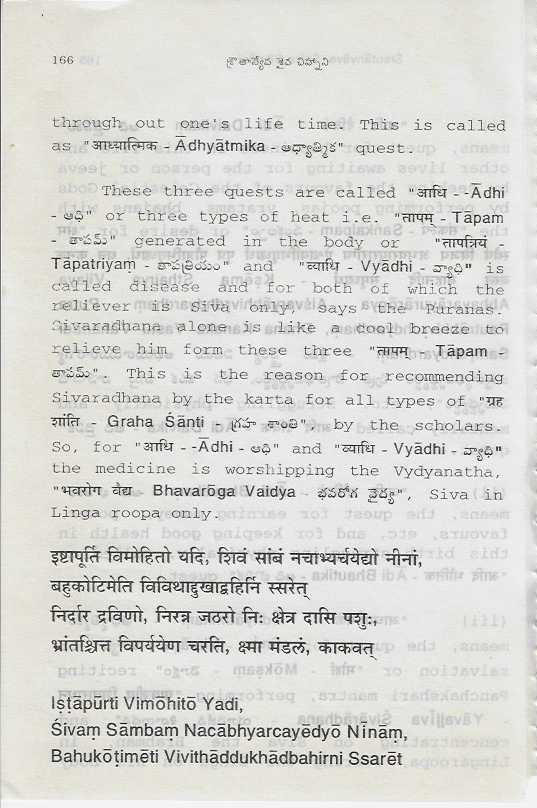 166 శ్రౌతాన్యేవ శైవ చిహ్నాని
through out one's life time. This is called
as "आध्यात्मिक - Ādhyātmika - ఆధ్యాత్మిక" quest.
These three quests are called "आधि - -Ādhi
- ఆధి" or three types of heat i.e. "तापम् - Tāpam
- తాపమ్" generated in the body or "तापत्रियं -
Tāpatriyaṃ - తాపత్రియం" and "व्याधि - Vyādhi - వ్యాధి" is
called disease and for both of which the
reliever is Siva only, says the Puranas.
Sivaradhana alone is like a cool breeze to
relieve him form these three "तापम् - Tāpam -
తాపమ్". This is the reason for recommending
Sivaradhana by the karta for all types of "ग्रह
शांति - Graha Śānti - గ్రహ శాంతి", by the scholars.
So, for "आधि - -Ādhi - ఆధి" and "व्याधि - Vyādhi - వ్యాధి"
the medicine is worshipping the Vydyanatha,
"भवरोग वैद्य - Bhavarōga Vaidya - భవరోగ వైద్య", Siva in
Linga roopa only.
इष्टापूर्ति विमोहितो यदि, शिवं सांबं नचाभ्यर्चयेद्यो नीनां,
बहुकोटिमेति विविथाद्दुखाद्बहिर्नि स्सरेत्
निर्दार द्रविणो, निरन्न जठरो निः क्षेत्र दासि पशुः,
भ्रांतश्चित्त विपर्ययेण चरति, क्ष्मा मंडलं, काकवत्
Iṣṭāpūrti Vimōhitō Yadi,
Śivaṃ Sāmbaṃ Nacābhyarcayedyo Nīnāṃ,
Bahukōṭimēti Vivithāddukhādbahirni Ssarēt